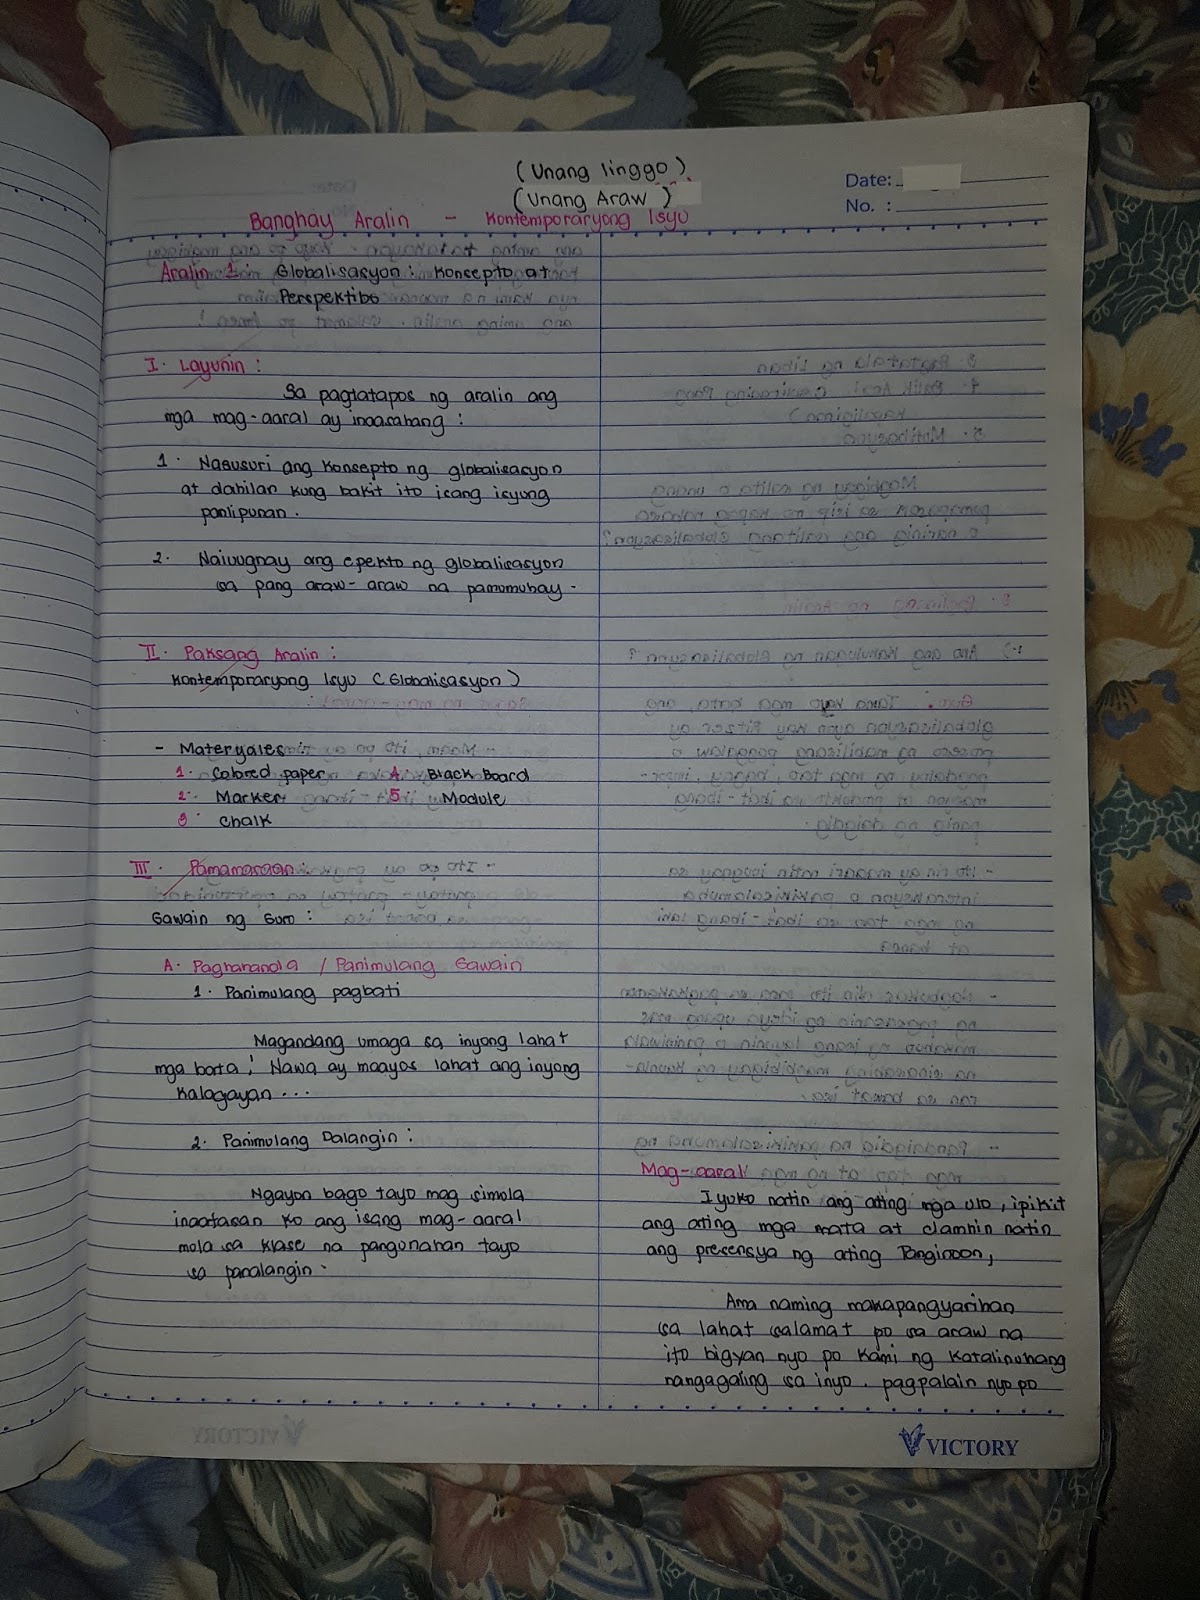 (Unang linggo)
(Unang Araw)
Date:
No. :
Banghay Aralin - Kontemporaryong Isyu
Aralin 1: Globalisasyon: Konsepto at
Perspektibo
I. Layunin :
Sa pagtatapos ng aralin ang
mga mag-aaral ay inaasahang :
1. Nasusuri ang konsepto ng globalisasyon
at dahilan kung bakit ito isang isyung
panlipunan.
2. Naiuugnay ang epekto ng globalisasyon
sa pang araw-araw na pamumuhay.
II. Paksang Aralin :
Kontemporaryong Isyu (Globalisasyon)
- Materyales :
1. Colored paper 4. Black Board
2. Marker 5. Module
3. Chalk
III. Pamamaraan :
Gawain ng Guro :
A. Paghahanda / Panimulang Gawain
1. Panimulang pagbati
Magandang umaga sa inyong lahat
mga bata! Nawa ay maayos lahat ang inyong
kalagayan...
2. Panimulang Dalangin :
Ngayon bago tayo mag simola
inaatasan ko ang isang mag-aaral
mola sa klase na pangunahan tayo
sa panalangin.
Mag-aaral
Iyuko natin ang ating mga ulo, ipikit
ang ating mga mata at damhin natin
ang presensya ng ating Panginoon,
Ama naming makapangyarihan
sa lahat salamat po sa araw na
ito bigyan nyo po kami ng katalinuhang
nangagaling sa inyo. pagpalain nyo po
VICTORY